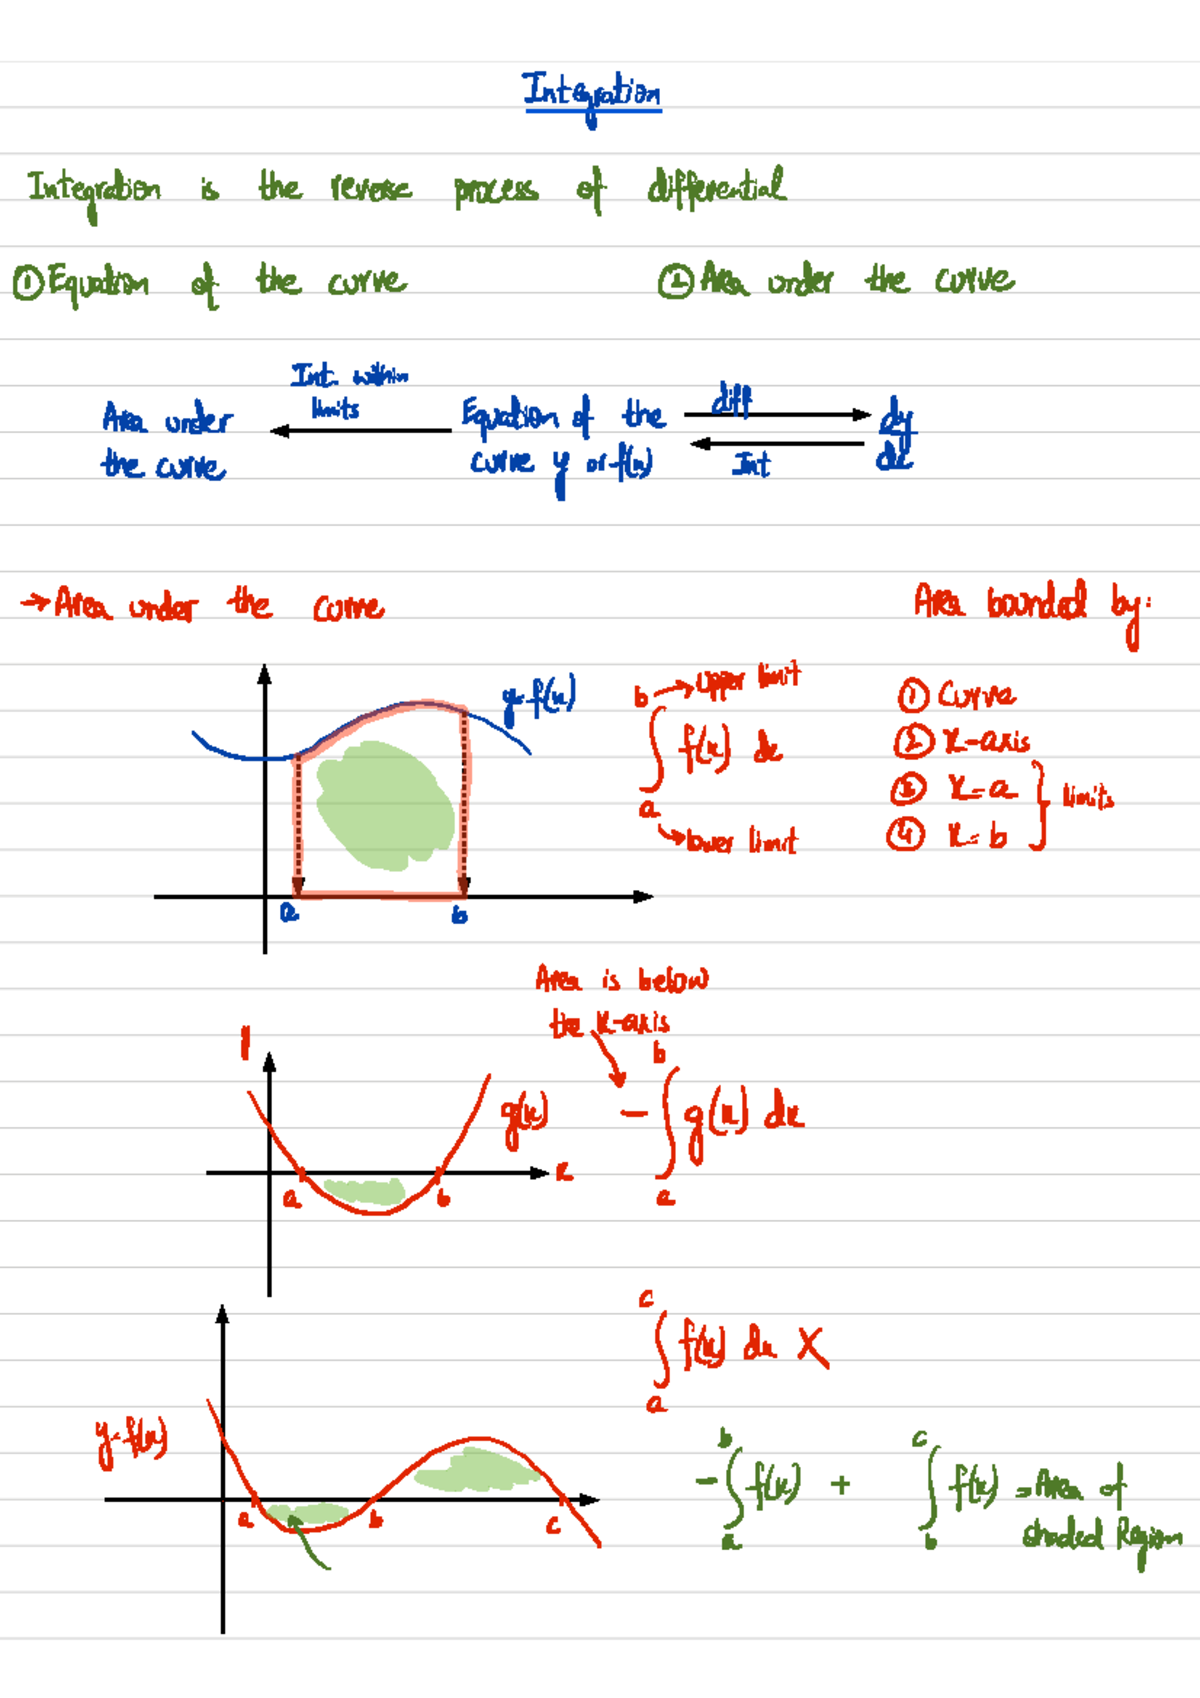 Integration
Integration is the reverse process of differential
① Equation of the curve ② Area under the curve
Int. within
limits
Area under
the curve
Equation of the
curve y or f(x)
diff
Int
dy
dx
→ Area under the curve
Area bounded by:
y=f(x)
a b
b → upper limit
∫ f(x) dx
a
→ lower limit
① Curve
② x-axis
③ x=a
④ x=b
} limits
Area is below
the x-axis
y
g(x)
x
a b
b
- ∫ g(x) dx
a
c
∫ f(x) dx X
a
y=f(x)
a b c
b c
- ∫ f(x) + ∫ f(x) = Area of
a b shaded Region